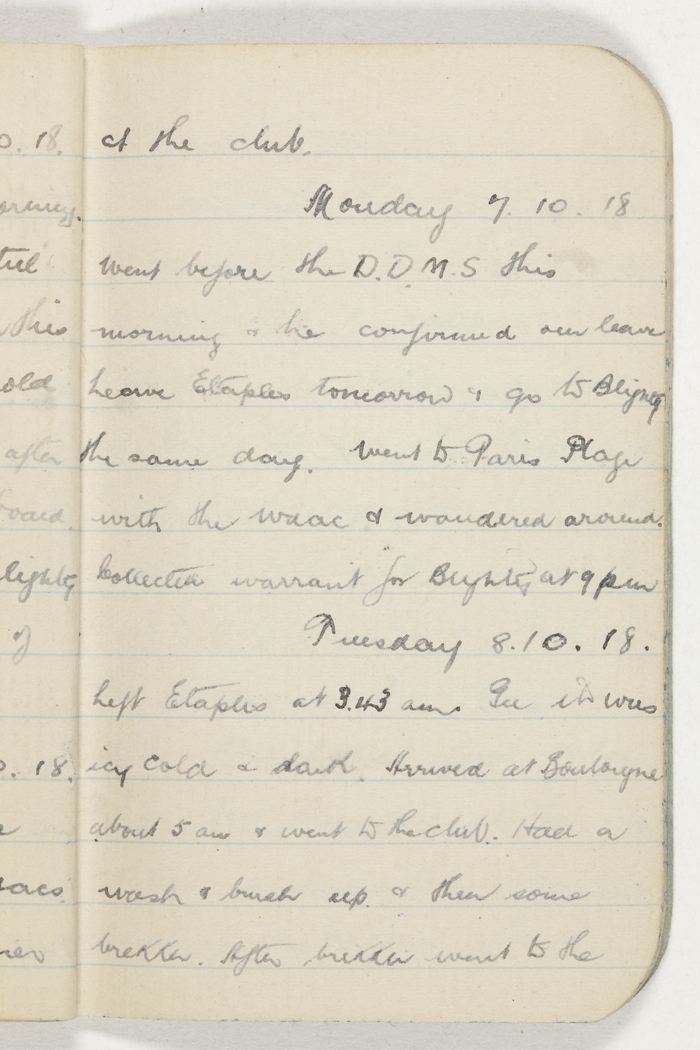 at the club.
Monday 7.10.18
Went before the D.D.M.S this
morning & he confirmed our leave
Leave Etaples tomorrow & go to Blighty
the same day. Went to Paris Plage
with the Waac & wandered around.
Collected warrant for Blighty at 9 pm
Tuesday 8.10.18.
Left Etaples at 3.43 am. Gee it was
icy cold & dark. Arrived at Boulogne
about 5 am & went to the club. Had a
wash & brush up & then some
brekker. After brekker went to the